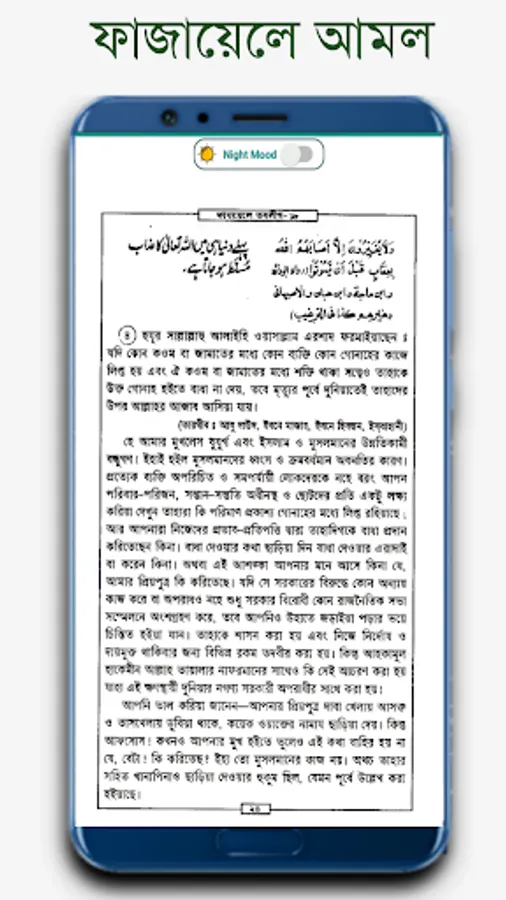 ফাজায়েলে আমল
Night Mood
ফাযায়েলে তবলীগ-
وَلَا يُغَيِّرُوْنَ اِلَّا اَصَابَهُمُ اللّٰهُ
بِعِقَابٍ قَبْلَ اَنْ يَّمُوْتُوْا
وابن ماجة وابن حبان والاصبهانى
وغيرهم كذا فى الترغيب)
پہلے دنیا ہی میں اللہ تعالیٰ کا عذاب
مسلط ہو جاتا ہے۔
৪ হুযূর সাল্লাল্লাহু আলাইহি ওয়াসাল্লাম এরশাদ ফরমাইয়াছেন ঃ
যদি কোন কওম বা জামাতের মধ্যে কোন ব্যক্তি কোন গোনাহের কাজে
লিপ্ত হয় এবং ঐ কওম বা জামাতের মধ্যে শক্তি থাকা সত্ত্বেও তাহাকে
উক্ত গোনাহ হইতে বাধা না দেয়, তবে মৃত্যুর পূর্বে দুনিয়াতেই তাহাদের
উপর আল্লাহর আজাব আসিয়া যায়।
(তারগীব ঃ আবূ দাউদ, ইবনে মাজাহ, ইবনে হিব্বান, ইস্বাহানী)
হে আমার মুখলেস বুযুর্গ এবং ইসলাম ও মুসলমানের উন্নতিকামী
বন্ধুগণ। ইহাই হইল মুসলমানদের ধ্বংস ও ক্রমবর্ধমান অবনতির কারণ।
প্রত্যেক ব্যক্তি অপরিচিত ও সমপর্যায়ী লোকদেরকে নহে বরং আপন
পরিবার-পরিজন, সন্তান-সন্ততি অধীনস্থ ও ছোটদের প্রতি একটু লক্ষ্য
করিয়া দেখুন তাহারা কি পরিমাণ প্রকাশ্য গোনাহের মধ্যে লিপ্ত রহিয়াছে;
আর আপনারা নিজেদের প্রভাব-প্রতিপত্তি দ্বারা তাহাদিগকে বাধা প্রদান
করিতেছেন কিনা। বাধা দেওয়ার কথা ছাড়িয়া দিন বাধা দেওয়ার এরাদাই
বা করেন কিনা। অথবা এই আশঙ্কা আপনার মনে আসে কিনা যে,
আমার প্রিয়পুত্র কি করিতেছে। যদি সে সরকারের বিরুদ্ধে কোন অন্যায়
কাজ করে বা অপরাধও নহে শুধু সরকার বিরোধী কোন রাজনৈতিক সভা
সম্মেলনে অংশগ্রহণ করে, তবে আপনিও উহাতে জড়াইয়া পড়ার ভয়ে
চিন্তিত হইয়া যান। তাহাকে শাসন করা হয় এবং নিজে নির্দোষ ও
দায়মুক্ত থাকিবার জন্য বিভিন্ন রকম তদবীর করা হয়। কিন্তু আহকামুল
হাকেমীন আল্লাহ তায়ালার নাফরমানের সাথেও কি সেই আচরণ করা হয়
যাহা এই ক্ষণস্থায়ী দুনিয়ার নগণ্য সরকারী অপরাধীর সাথে করা হয়।
আপনি ভাল করিয়া জানেন—আপনার প্রিয়পুত্র দাবা খেলায় আসক্ত
ও তাসখেলায় ডুবিয়া থাকে, কয়েক ওয়াক্তের নামায ছাড়িয়া দেয়। কিন্তু
আফসোস! কখনও আপনার মুখ হইতে ভুলেও এই কথা বাহির হয় না
যে, বেটা! কি করিতেছ! ইহা তো মুসলমানের কাজ নয়। অথচ তাহার
সহিত খানাপিনাও ছাড়িয়া দেওয়ার হুকুম ছিল, যেমন পূর্বে উল্লেখ করা
হইয়াছে।